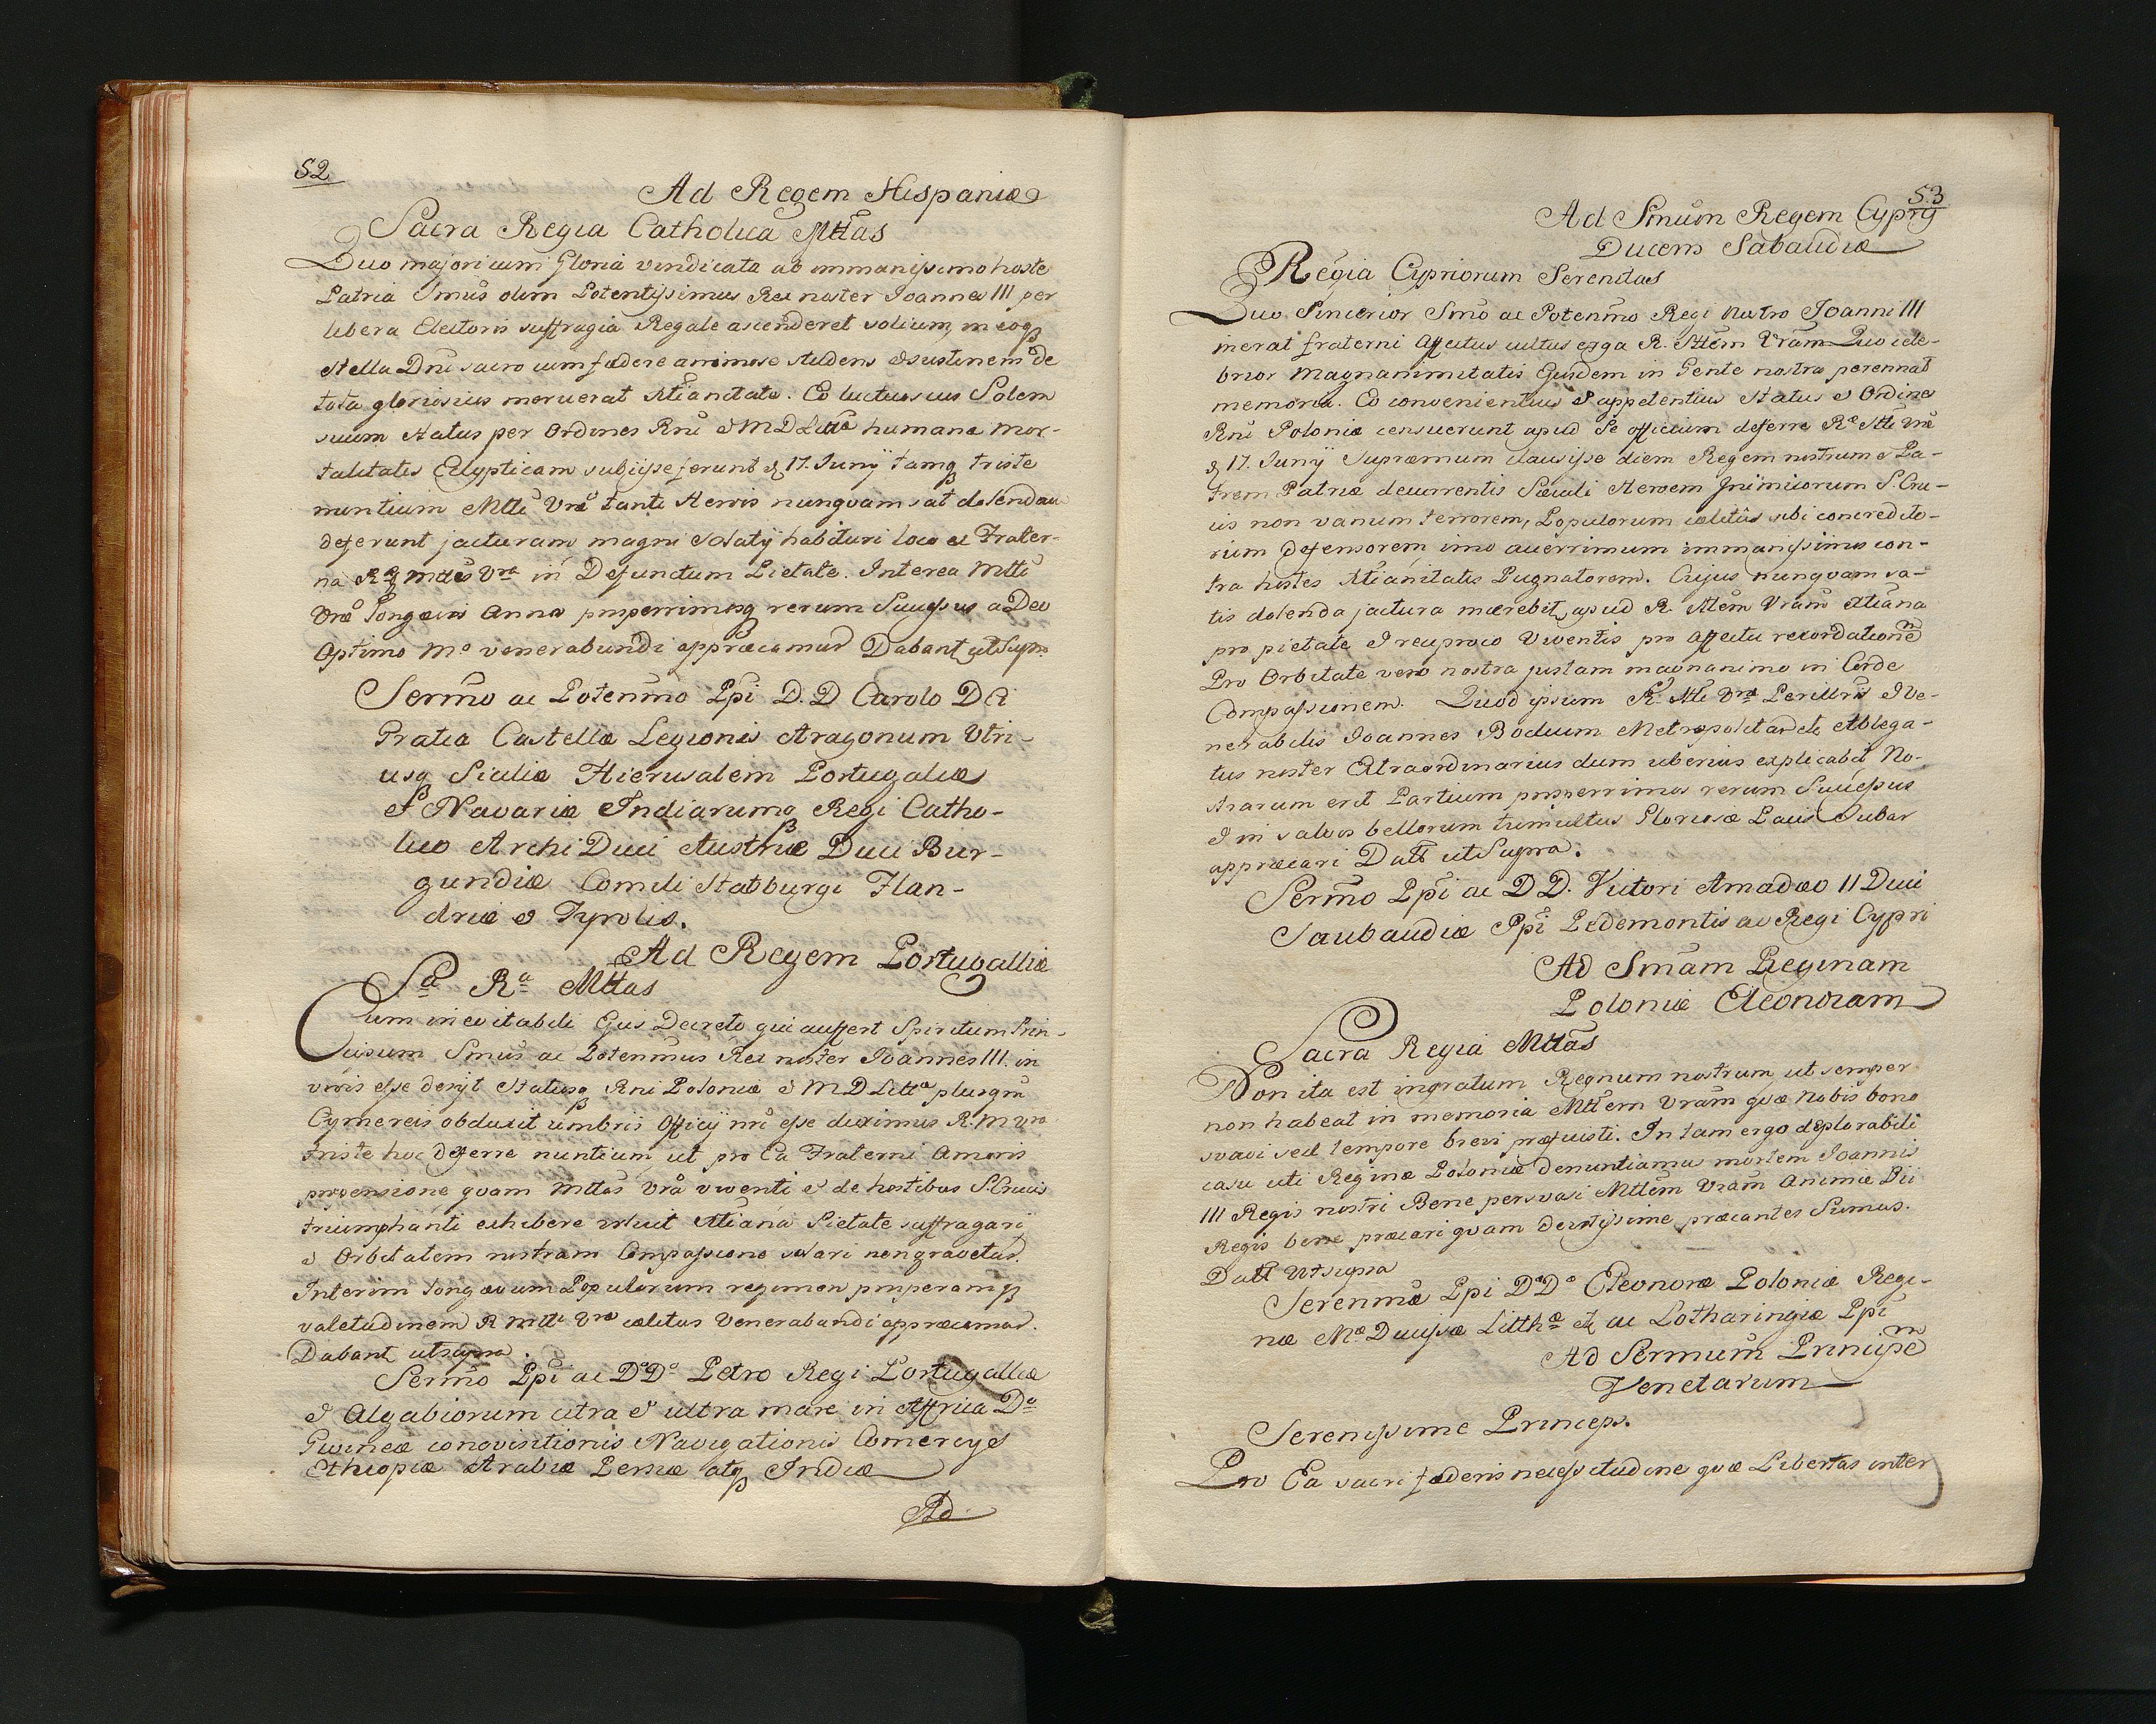 52
Ad Regem Hispaniæ
Sacra Regia Catholica Mttãs
Quo majori cum Gloria vindicata ab immanissimo hoste
Patria Smũs olim Potentissimus Rex noster Joannes III per
libera Electoris suffragia Regale ascenderet solium, in eoq
stella Dni sacro cum fædere animose studens & sustinem de
tota gloriosius meruerat Xtianitate. Eo luctuosius Solem
suum Status per Ordines Rni & M D Littæ humanæ mor-
talitatis Eclypticam subijsse ferunt d 17. Junÿ tamq triste
nuntium Mtti Vræ tanti Herois nunqvam sat dolendam
deferunt jacturam magni solatÿ habituri loco ex Frater-
na Rq Mttis Vra in Defunctum Pietate. Interea Mtti
Vræ longævos Annos prosperrimosq rerum Sucessus a Deo
Optimo Mo venerabundi appræcamur Dabant ut Supra
Sermo ac Potenmo Ppi D. D Carolo Dei
Gratia Castellæ Legionis Aragonum Utri-
usq Siciliæ Hierusalem Portugaliæ
et Navariæ Indiarumq Regi Catho-
lico Archi Duci Austriæ Duci Bur-
gundiæ Comiti Stabburgi Flan-
driæ & Tyrolis.
Ad Regem Portugalliæ
Sa Ra Mttas
Cum inevitabili Ejus Decreto qui auffert Spiritum Prin-
cipum Smũs ac Potenmus Rex noster Joannes III. in
vivis esse desijt Statusq Rni Poloniæ & M D Littæ plusqm
Cymereis obduxit umbris Officij nri esse duximus R. M Vræ
triste hoc deferre nuntium ut pro Ea Fraterni Amoris
propensione qvam Mttas Vra viventi & de hostibus S Crucis
triumphanti exhibere voluit Xtiana Pietate suffragari
& Orbitatem nostram Compassione solari non gravetur.
Interim longævum Populorum regimen prosperamq
valetudinem R Mtti Vræ cælitus Venerabundi appræcamur.
Dabant ut supra.
Sermo Ppi ac Do Do Petro Regi Portugalliæ
& Algabiorum citra & ultra mare in Affrica Do
Guineæ conqvisitionis Navigationis Comercÿs
Ethiopiæ Arabiæ Persiæ atq Indiæ
Ad
53
Ad Smũm Regem Cyprÿ
Ducem Sabaudiæ
Regia Cypriorum Serenitas
Quo Sincerior Smo ac Potenmo Regi nostro Joanni III
inerat fraterni Affectus cultus erga R. Mttem Vram Quo cele-
brior Magnanimitatis Ejusdem in Gente nostra perennat
memoria. Eo convenientius & appetentius Status & Ordines
Rni Poloniæ censuerunt apud Se officium deferre Ræ Mtti Vræ
d 17. Junÿ Supræmum clausisse diem Regem nostrum & Pa-
trem Patriæ decurrentis Sæculi Heroem Inimicorum S Cru-
cis non vanum terrorem, Populorum cælitus sibi concredito-
rum defensorem imo acerrimum immanissimos con-
tra hostes Xtianitatis Pugnatorem. Cujus nunqvam sa-
tis dolenda jactura mærebit, apud R. Mtem Vram Xtiana
pro pietate & reciproco Viventis pro affectu recordationem
Pro Orbitate vero nostra justam magnanimo in Corde
Compassionem. Quod ipsum R. Mtti Vræ Perillris & Ve-
nerabilis Joannes Bodium Metropolitandt, Ablega-
tus noster Extraordinarius dum uberius explicabit No-
strarum erit Partium prosperrimos rerum Sucessus
& in salvos bellorum tumultus Gloriosæ Pacis Jubar
appræcari Datt ut Supra.
Sermo Ppi ac D D. Victori Amadæo II Duci
Saubaudiæ Ppi Pedemontis ac Regi Cypri
Ad Smãm Reginam
Poloniæ Eleonoram
Sacra Regia Mttas
Non ita est ingratum Regnum nostrum, ut semper
non habeat in memoria Mttem Vram qvæ Nobis bono
svavi sed tempore brevi præfuisti. In tam ergo deplorabili
casu uti Reginæ Poloniæ denuntiamus mortem Joannis
III Regis nostri Bene persvasi Mttem Vram Animæ Pii
Regis bene præcari qvam devotissime præcantes Sumus.
Datt ut supra
Serenmæ Ppi Do Do Eleonoræ Poloniæ Regi-
næ Mæ Ducissæ Litthæ & ac Lotharingiæ Ppi
Ad Sermum Principem
Venetarum
Serenissime Princeps.
Pro Ea sacri fæderis necessitudine qvæ Libertas inter